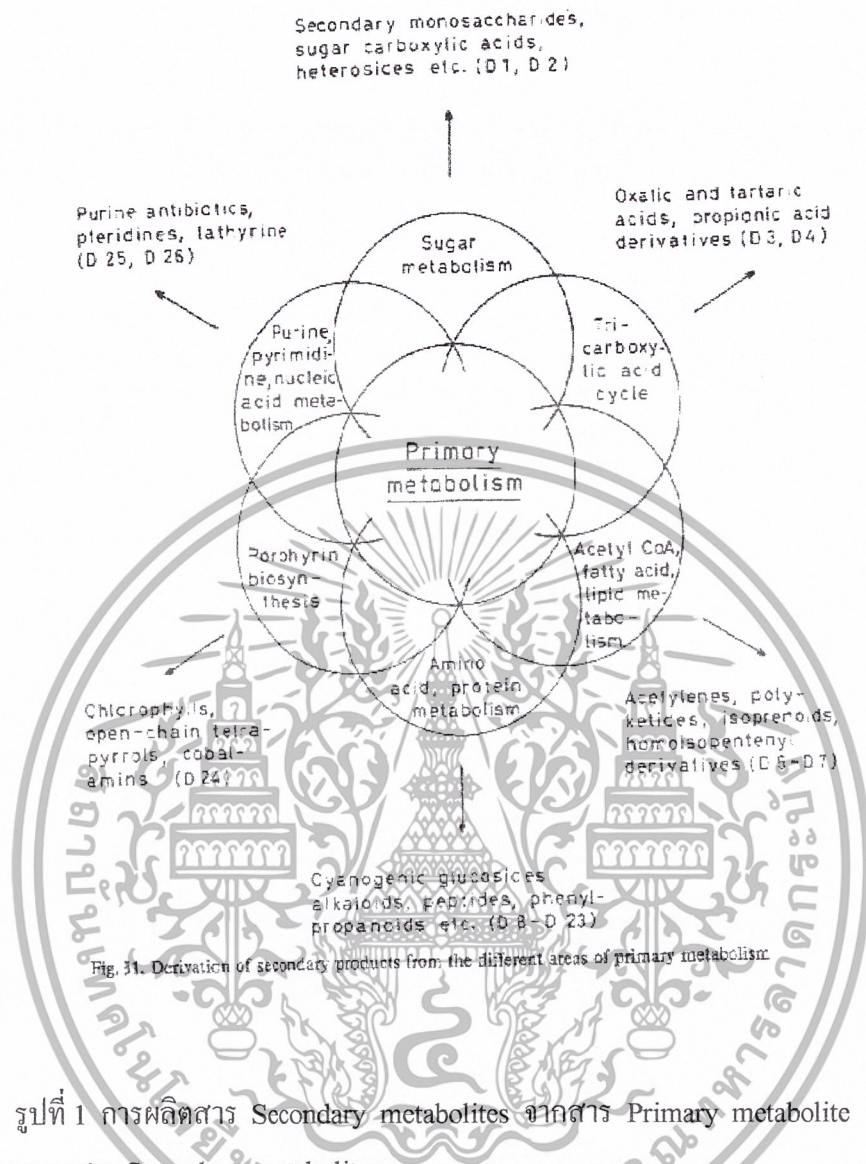 Secondary monosaccharides,
sugar carboxylic acids,
heterosices etc. (D1, D2)
Purine antibiotics,
pteridines, lathyrine
(D 25, D 26)
Oxalic and tartaric
acids, propionic acid
derivatives (D3, D4)
Sugar
metabolism
Purine,
pyrimidi-
ne, nucleic
acid meta-
bolism
Tri-
carboxy-
lic acid
cycle
Primary
metabolism
Porphyrin
biosyn-
thesis
Acetyl CoA,
fatty acid,
lipid me-
tabo-
lism
Amino
acid, protein
metabolism
Chlorophylls,
open-chain tetra-
pyrrols, cobal-
amins (D 24)
Acetylenes, poly-
ketices, isoprenoids,
homoisopentenyl
derivatives (D 5-D 7)
Cyanogenic glucosices
alkaloids, peptides, phenyl-
propanoids etc. (D 8-D 23)
Fig. 31. Derivation of secondary products from the different areas of primary metabolism
รูปที่ 1 การผลิตสาร Secondary metabolites จากสาร Primary metabolite